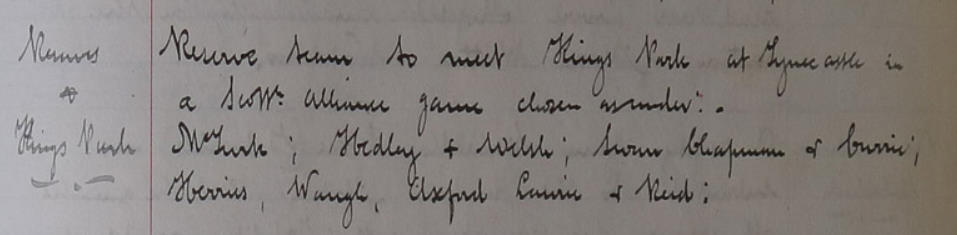 Reserves
&
Kings Park
Reserve team to meet Kings Park at Tynecastle in
a Scott: Alliance game chosen as under: -
McTurk ; Hedley + Welsh ; Swan Chapman & Currie ;
Herries, Waugh, Elxford Laurie & Reid :